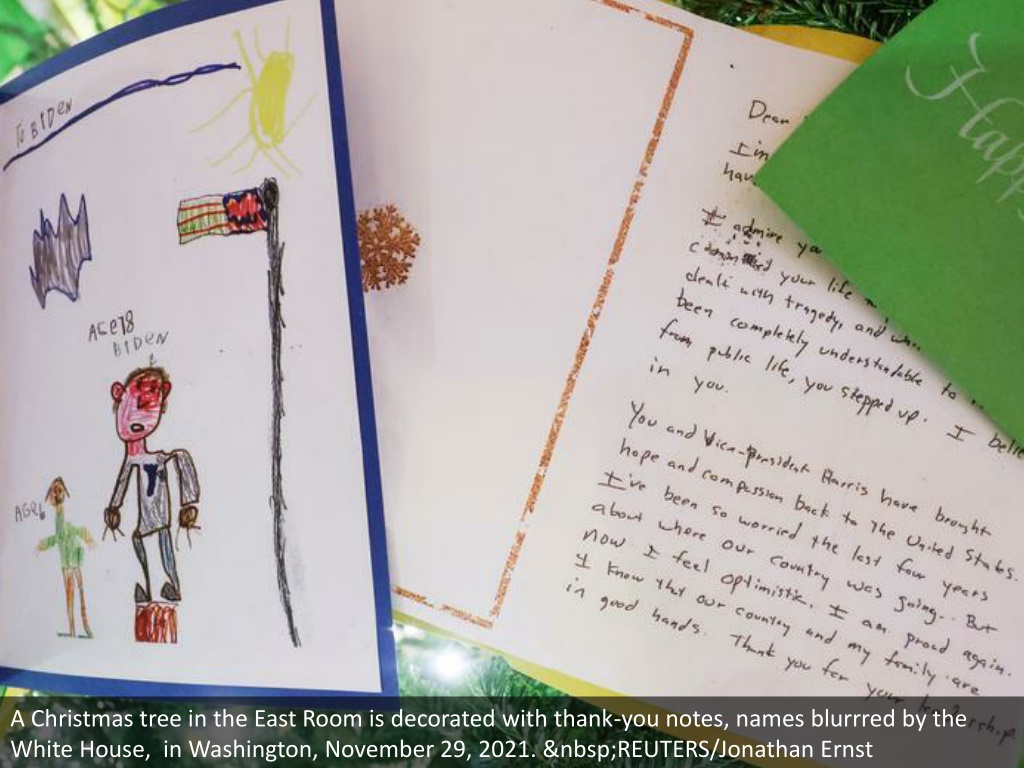 To BIDEN
AGE78
BIDEN
AGE6
Dear
I'm
hav
I admire yo
your life
dealt with tragedy, and wh
been completely understandable to
from public life, you stepped up. I belie
in you.
You and Vice-president Harris have brought
hope and compassion back to the United States.
I've been so worried the last four years
about where our country was going. But
now I feel optimistic. I am proud again.
I know that our country and my family are
in good hands. Thank you for your leadership.
Happ
A Christmas tree in the East Room is decorated with thank-you notes, names blurrred by the
White House,  in Washington, November 29, 2021. &nbsp;REUTERS/Jonathan Ernst